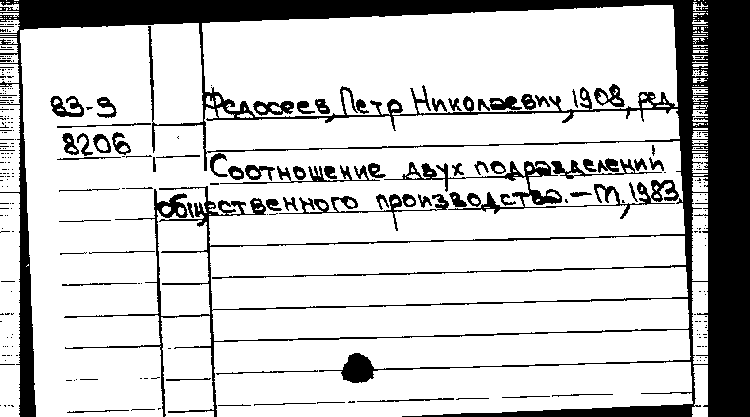 83-9 Федосеев, Петр Николаевич, 1908, ред.
8206
Соотношение двух подразделений
общественного производства. — М., 1983.